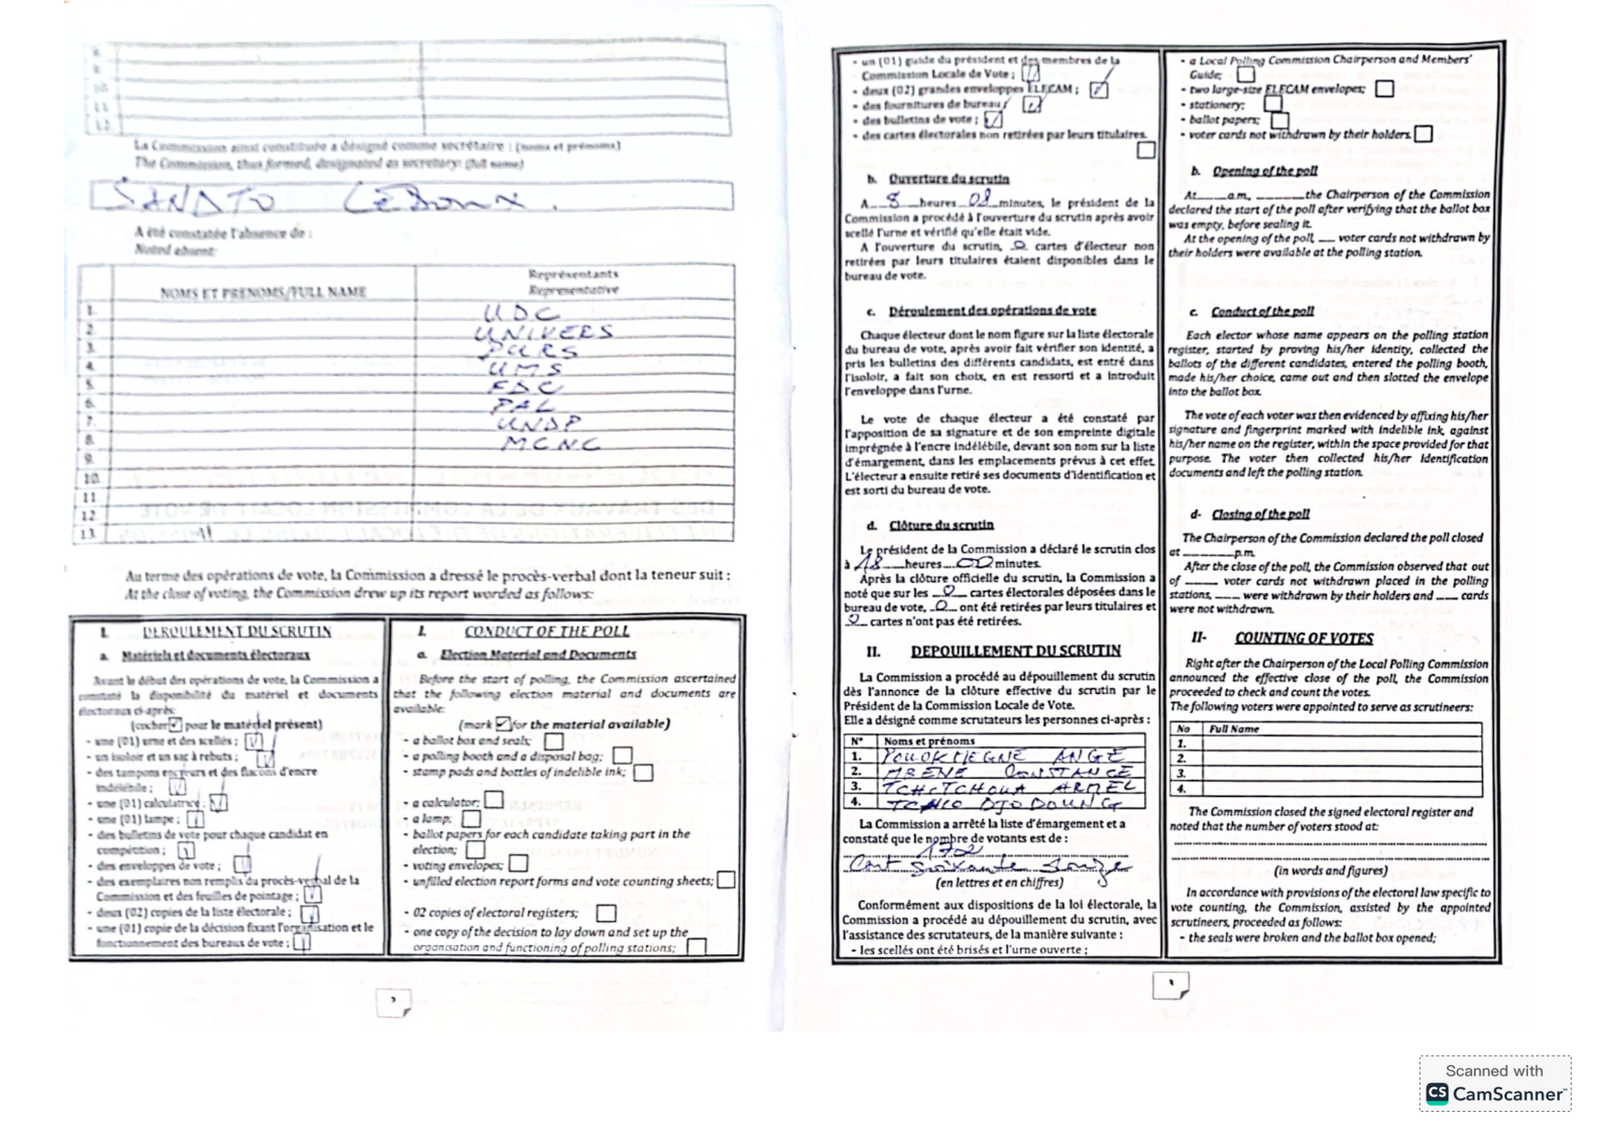 8.
9.
10.
11
12
La Commission ainsi constituée a désigné comme secrétaire : (noms et prénoms)
The Commission, thus formed, designated as secretary: (full name)
SANDJO
A été constatée l'absence de :
Noted absent:
NOMS ET PRENOMS/FULL NAME
Représentants
Representative
1. UDC
2. UNIVERS
3. PURS
4. UMS
5. FDC
6. PAL
7. UNDP
8. MCNC
9.
10.
11
12
13.
Au terme des opérations de vote, la Commission a dressé le procès-verbal dont la teneur suit :
At the close of voting, the Commission drew up its report worded as follows:
I. DEROULEMENT DU SCRUTIN
a. Matériels et documents électoraux
Avant le début des opérations de vote, la Commission a
constaté la disponibilité du matériel et documents
électoraux ci-après:
(cocher pour le matériel présent)
- une (01) urne et des scellés ;
- un isoloir et un sac à rebuts ;
- des tampons encreurs et des flacons d'encre
indélébile ;
- une (01) calculatrice ;
- une (01) lampe ;
- des bulletins de vote pour chaque candidat en
compétition ;
- des enveloppes de vote ;
- des exemplaires non remplis du procès-verbal de la
Commission et des feuilles de pointage ;
- deux (02) copies de la liste électorale ;
- une (01) copie de la décision fixant l'organisation et le
fonctionnement des bureaux de vote ;
I. CONDUCT OF THE POLL
a. Election Material and Documents
Before the start of polling, the Commission ascertained
that the following election material and documents are
available:
(mark for the material available)
- a ballot box and seals;
- a polling booth and a disposal bag;
- stamp pads and bottles of indelible ink;
- a calculator;
- a lamp;
- ballot papers for each candidate taking part in the
election;
- voting envelopes;
- unfilled election report forms and vote counting sheets;
- 02 copies of electoral registers;
- one copy of the decision to lay down and set up the
organisation and functioning of polling stations;
- un (01) guide du président et des membres de la
Commission Locale de Vote ;
- deux (02) grandes enveloppes ELECAM ;
- des fournitures de bureau ;
- des bulletins de vote ;
- des cartes électorales non retirées par leurs titulaires.
b. Ouverture du scrutin
A 8 heures 08 minutes, le président de la
Commission a procédé à l'ouverture du scrutin après avoir
scellé l'urne et vérifié qu'elle était vide.
A l'ouverture du scrutin, 0 cartes d'électeur non
retirées par leurs titulaires étaient disponibles dans le
bureau de vote.
c. Déroulement des opérations de vote
Chaque électeur dont le nom figure sur la liste électorale
du bureau de vote, après avoir fait vérifier son identité, a
pris les bulletins des différents candidats, est entré dans
l'isoloir, a fait son choix, en est ressorti et a introduit
l'enveloppe dans l'urne.
Le vote de chaque électeur a été constaté par
l'apposition de sa signature et de son empreinte digitale
imprégnée à l'encre indélébile, devant son nom sur la liste
d'émargement, dans les emplacements prévus à cet effet.
L'électeur a ensuite retiré ses documents d'identification et
est sorti du bureau de vote.
d. Clôture du scrutin
Le président de la Commission a déclaré le scrutin clos
à 18 heures 00 minutes.
Après la clôture officielle du scrutin, la Commission a
noté que sur les 0 cartes électorales déposées dans le
bureau de vote, 0 ont été retirées par leurs titulaires et
0 cartes n'ont pas été retirées.
II. DEPOUILLEMENT DU SCRUTIN
La Commission a procédé au dépouillement du scrutin
dès l'annonce de la clôture effective du scrutin par le
Président de la Commission Locale de Vote.
Elle a désigné comme scrutateurs les personnes ci-après :
N° Noms et prénoms
1. ANGE
2. MBENE CONSTANCE
3. TCHITCHOUA ARMEL
4. TCHIO
La Commission a arrêté la liste d'émargement et a
constaté que le nombre de votants est de :
Cent soixante
(en lettres et en chiffres)
Conformément aux dispositions de la loi électorale, la
Commission a procédé au dépouillement du scrutin, avec
l'assistance des scrutateurs, de la manière suivante :
- les scellés ont été brisés et l'urne ouverte ;
- a Local Polling Commission Chairperson and Members'
Guide;
- two large-size ELECAM envelopes;
- stationery;
- ballot papers;
- voter cards not withdrawn by their holders.
b. Opening of the poll
At____a.m, ______the Chairperson of the Commission
declared the start of the poll after verifying that the ballot box
was empty, before sealing it.
At the opening of the poll, ___ voter cards not withdrawn by
their holders were available at the polling station.
c. Conduct of the poll
Each elector whose name appears on the polling station
register, started by proving his/her identity, collected the
ballots of the different candidates, entered the polling booth,
made his/her choice, came out and then slotted the envelope
into the ballot box.
The vote of each voter was then evidenced by affixing his/her
signature and fingerprint marked with indelible ink, against
his/her name on the register, within the space provided for that
purpose. The voter then collected his/her identification
documents and left the polling station.
d- Closing of the poll
The Chairperson of the Commission declared the poll closed
at ______p.m.
After the close of the poll, the Commission observed that out
of ____ voter cards not withdrawn placed in the polling
stations, ____ were withdrawn by their holders and ____ cards
were not withdrawn.
II- COUNTING OF VOTES
Right after the Chairperson of the Local Polling Commission
announced the effective close of the poll, the Commission
proceeded to check and count the votes.
The following voters were appointed to serve as scrutineers:
No Full Name
1.
2.
3.
4.
The Commission closed the signed electoral register and
noted that the number of voters stood at:
(in words and figures)
In accordance with provisions of the electoral law specific to
vote counting, the Commission, assisted by the appointed
scrutineers, proceeded as follows:
- the seals were broken and the ballot box opened;
Scanned with
CS CamScanner